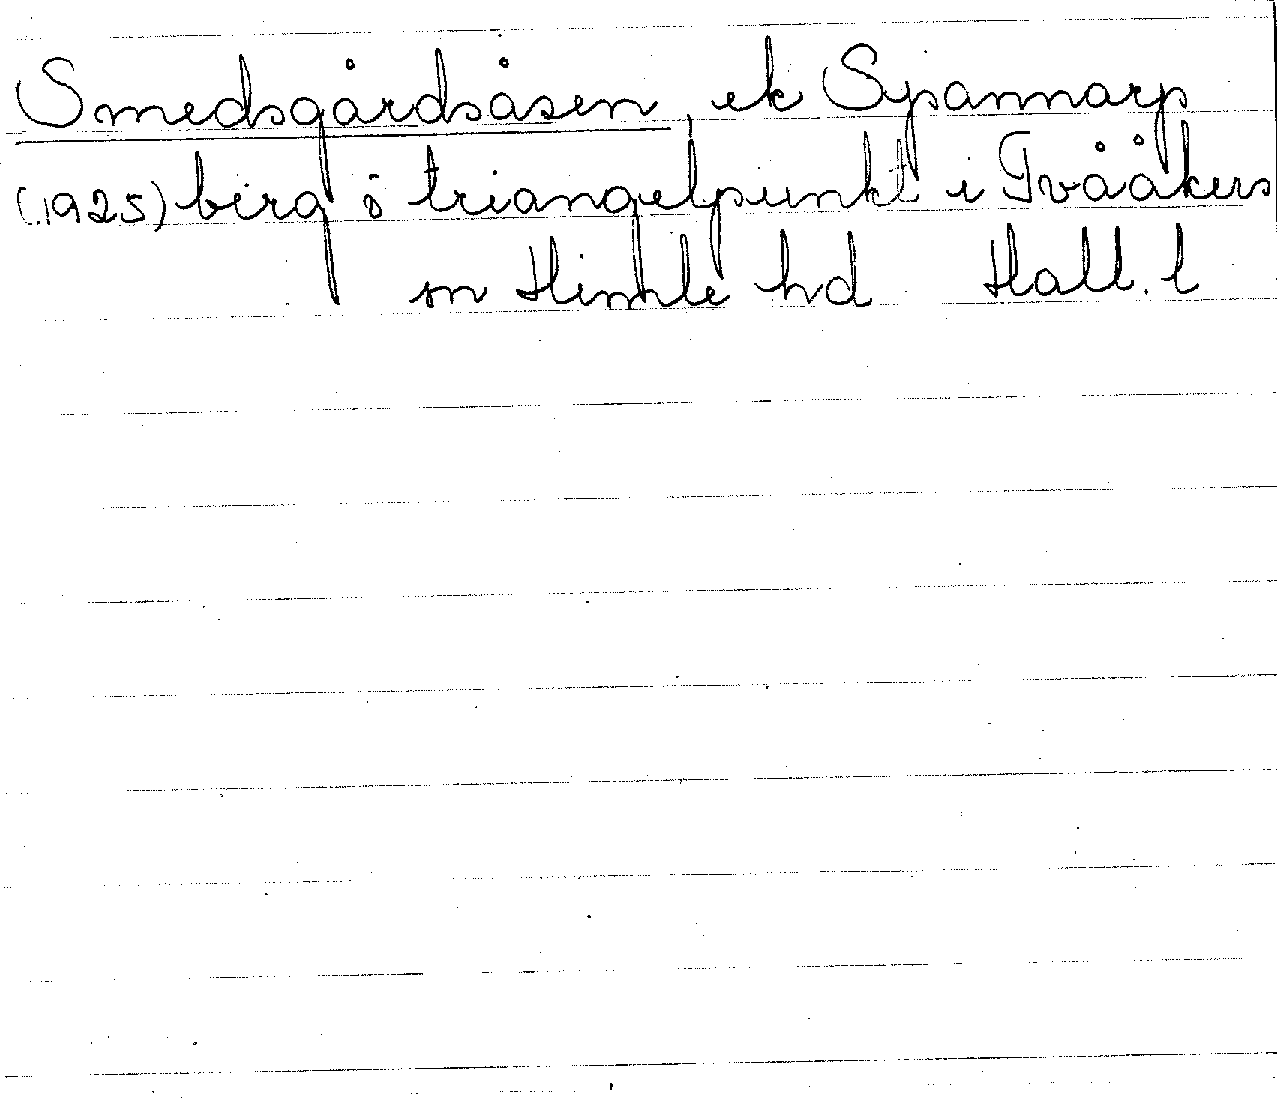 Smedsgårdsåsen, ek Spannarp
(1925) berg o triangelpunkt i Tvååkers
sn Himle hd Hall. l